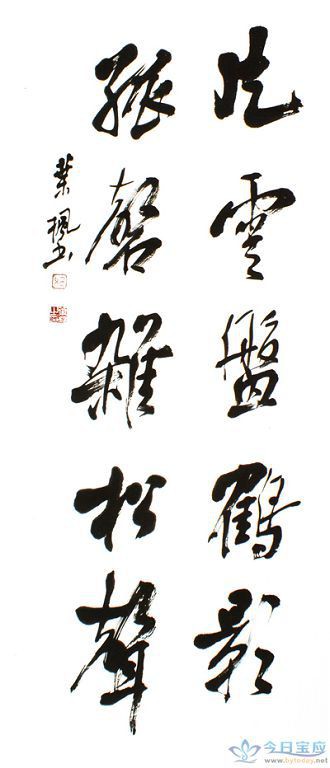 片雲盤鶴影
孤磬雜松聲
葉楓書
今日宝应
www.bytoday.net